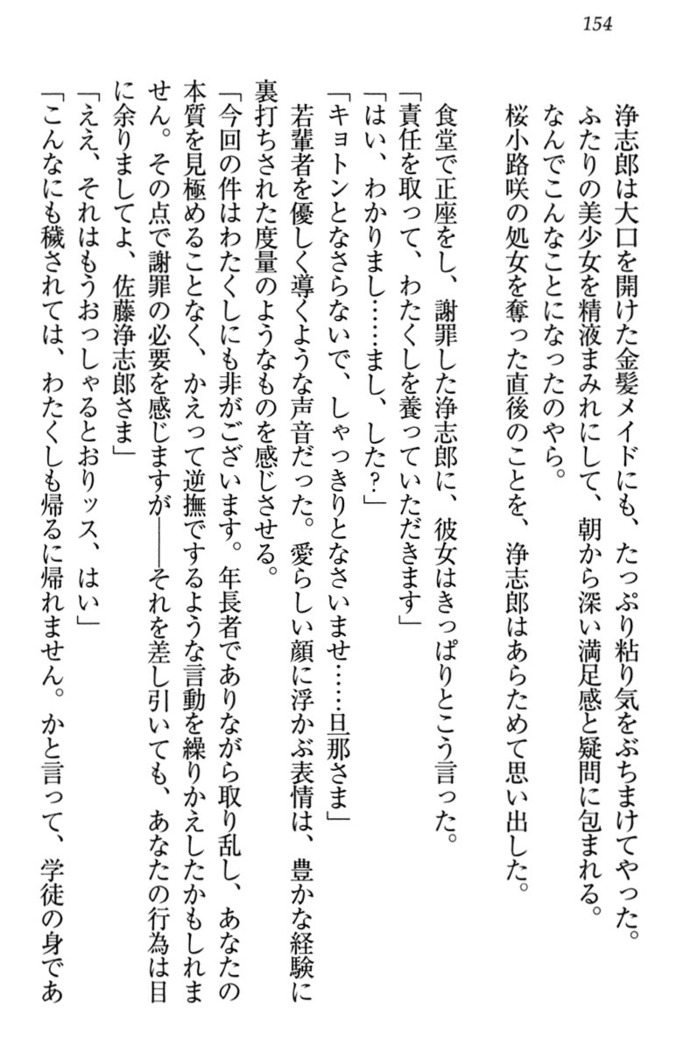 154
浄志郎は大口を開けた金髪メイドにも、たっぷり粘り気をぶちまけてやった。
ふたりの美少女を精液まみれにして、朝から深い満足感と疑問に包まれる。
なんでこんなことになったのやら。
桜小路咲の処女を奪った直後のことを、浄志郎はあらためて思い出した。
食堂で正座をし、謝罪した浄志郎に、彼女はきっぱりとこう言った。
「責任を取って、わたくしを養っていただきます」
「はい、わかりまし……まし、した?」
「キョトンとなさらないで、しゃっきりとなさいませ……旦那さま」
若輩者を優しく導くような声音だった。愛らしい顔に浮かぶ表情は、豊かな経験に
裏打ちされた度量のようなものを感じさせる。
「今回の件はわたくしにも非がございます。年長者でありながら取り乱し、あなたの
本質を見極めることなく、かえって逆撫でするような言動を繰りかえしたかもしれま
せん。その点で謝罪の必要を感じますが――それを差し引いても、あなたの行為は目
に余りましてよ、佐藤浄志郎さま」
「ええ、それはもうおっしゃるとおりッス、はい」
「こんなにも穢されては、わたくしも帰るに帰れません。かと言って、学徒の身であ